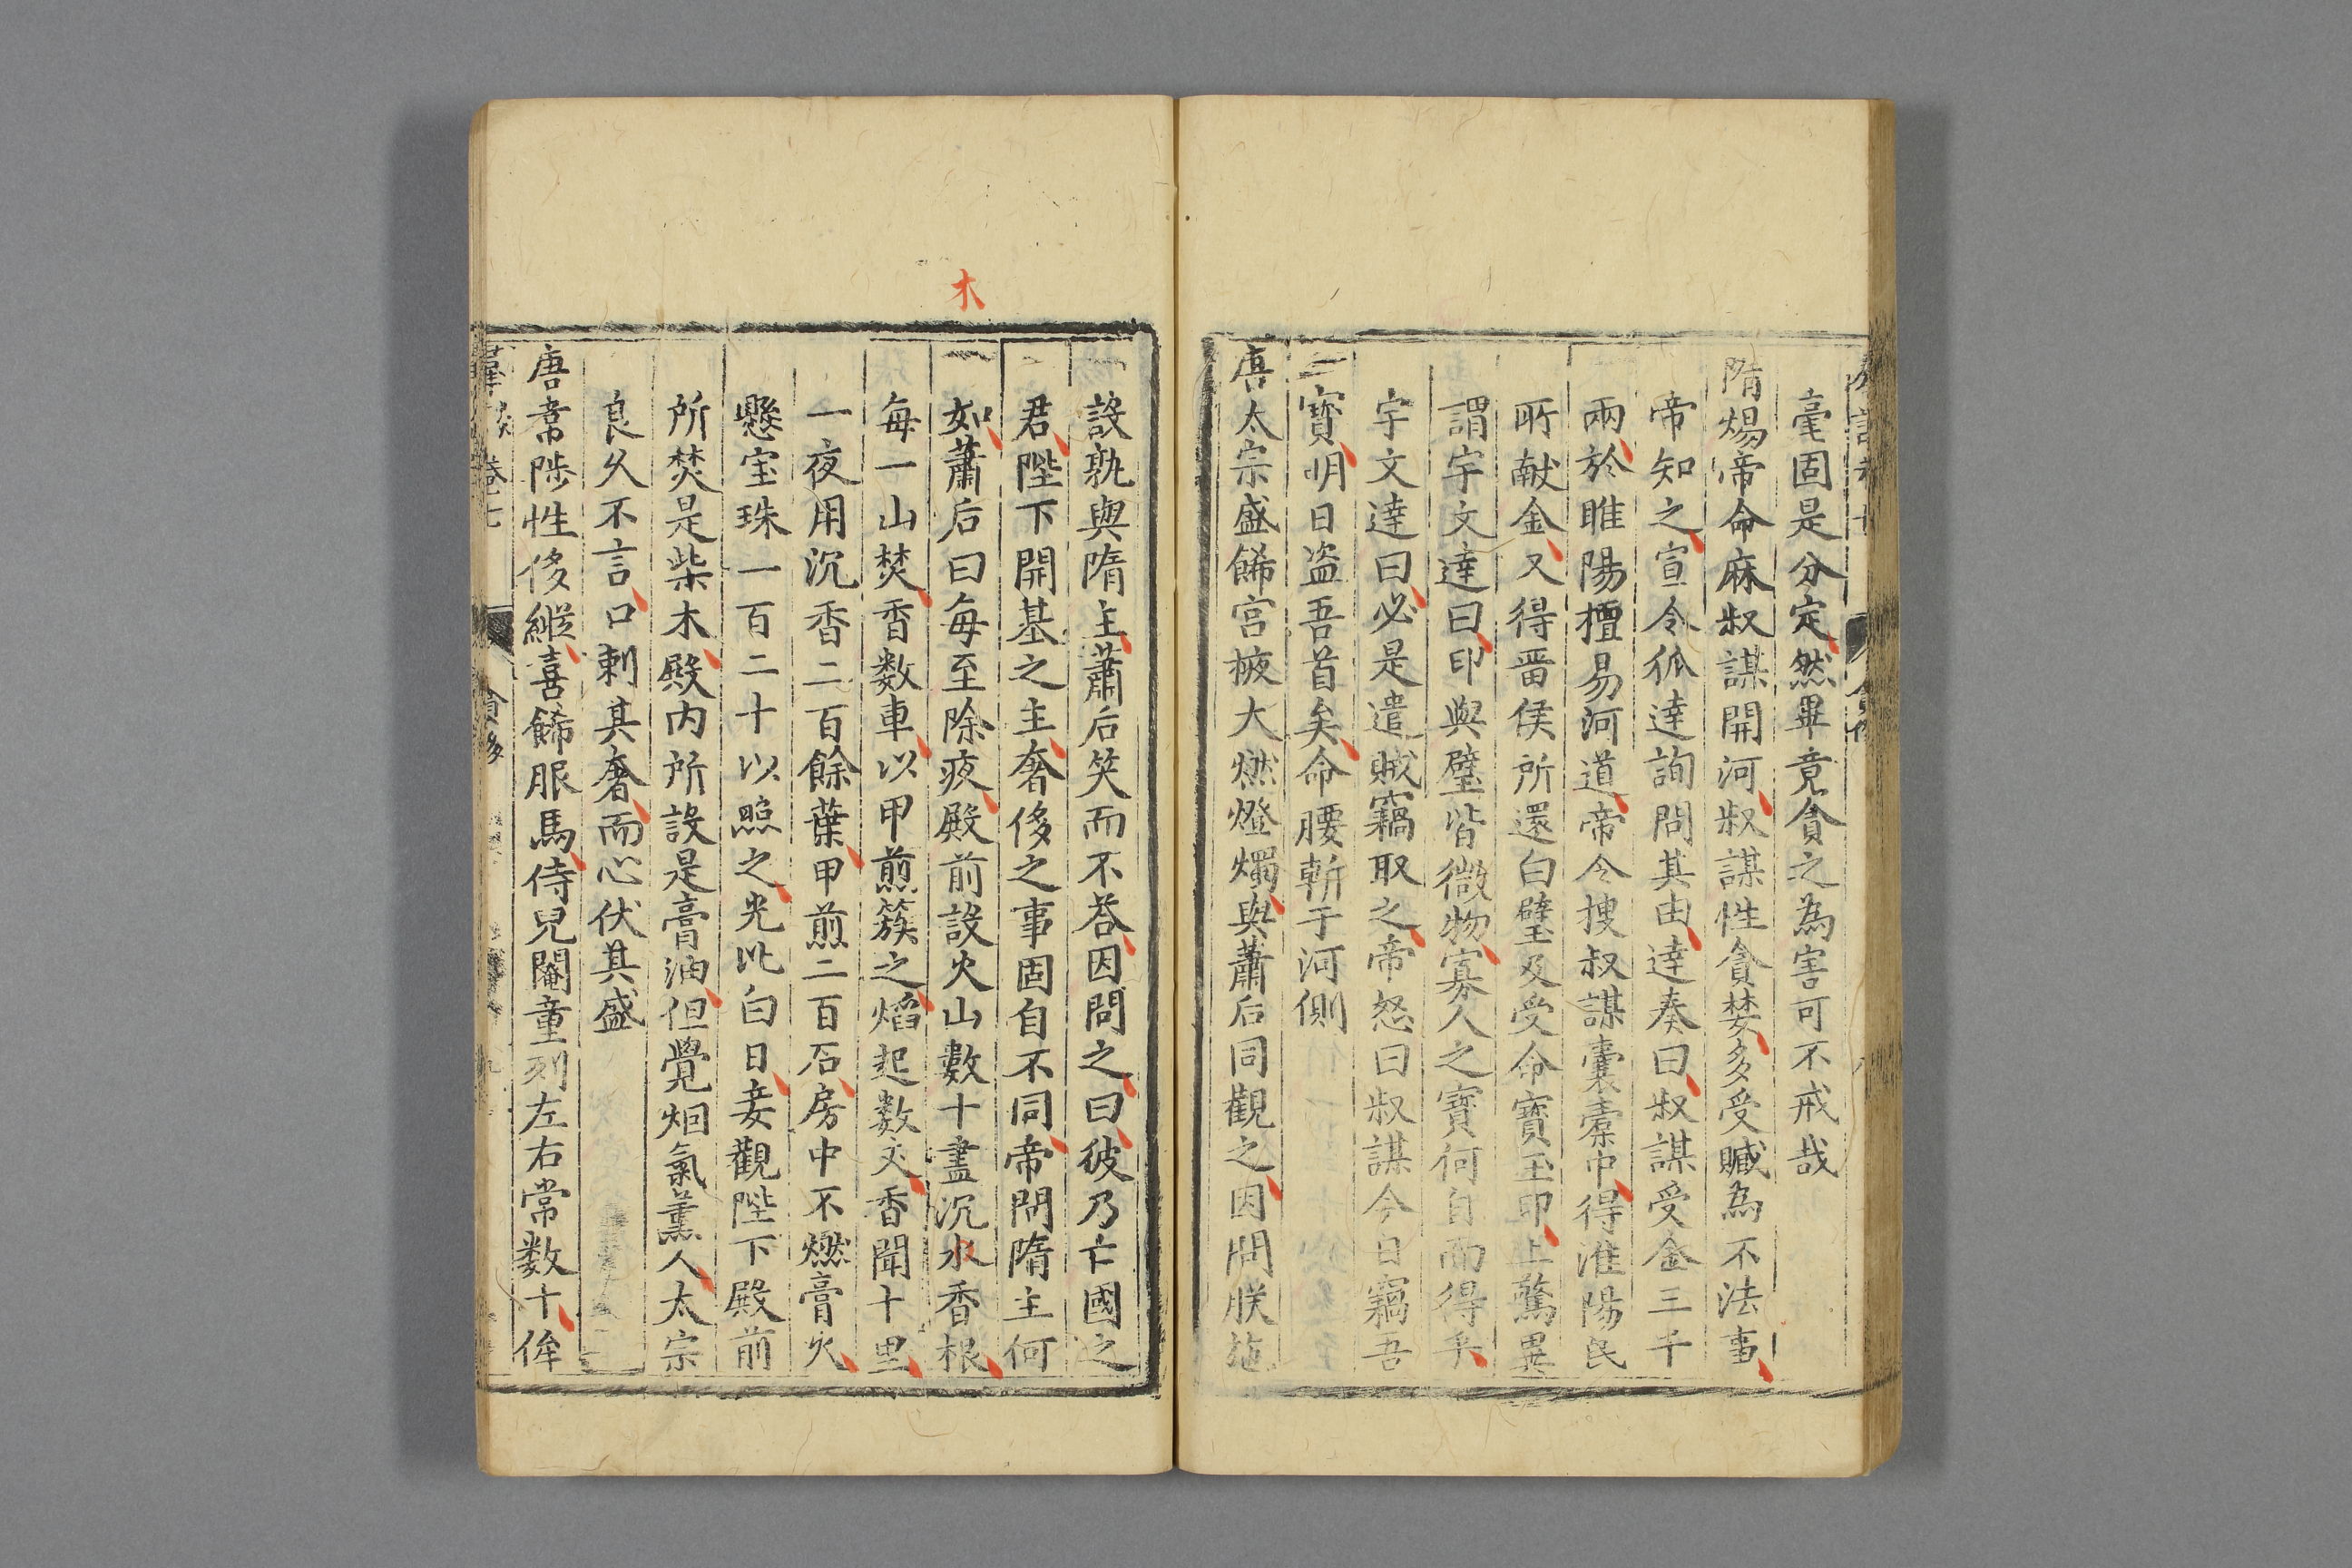 毫固是分定然畢竟貪之為害可不戒哉
隋煬帝命麻叔謀開河叔謀性貪婪多受贓為不法事
帝知之宣令狐達詢問其由達奏曰叔謀受金三千
兩於睢陽擅易河道帝令搜叔謀囊橐中得淮陽民
所献金又得晋侯所還白璧及受命寶玉印上驚異
謂宇文達曰印與璧皆微物寡人之寶何自而得乎
宇文達曰必是遣賊竊取之帝怒曰叔謀今日竊吾
寶明日盗吾首矣命腰斬于河側
唐太宗盛餙宫掖大燃燈燭與蕭后同觀之因問朕施
設孰與隋主蕭后笑而不荅因問之曰彼乃亡國之
君陛下開基之主奢侈之事固自不同帝問隋主何
木
如蕭后曰每至除夜殿前設火山數十盡沉水香根
每一山焚香数車以甲煎簇之焰起数丈香聞十里
一夜用沉香二百餘葉甲煎二百石房中不燃膏火
懸宝珠一百二十以照之光比白日妾觀陛下殿前
所焚是柴木殿内所設是膏油但覺烟氣薰人太宗
良久不言口刺其奢而心伏其盛
唐韋陟性侈縱喜餙服馬侍兒閹童列左右常数十侔
卷七 貪侈